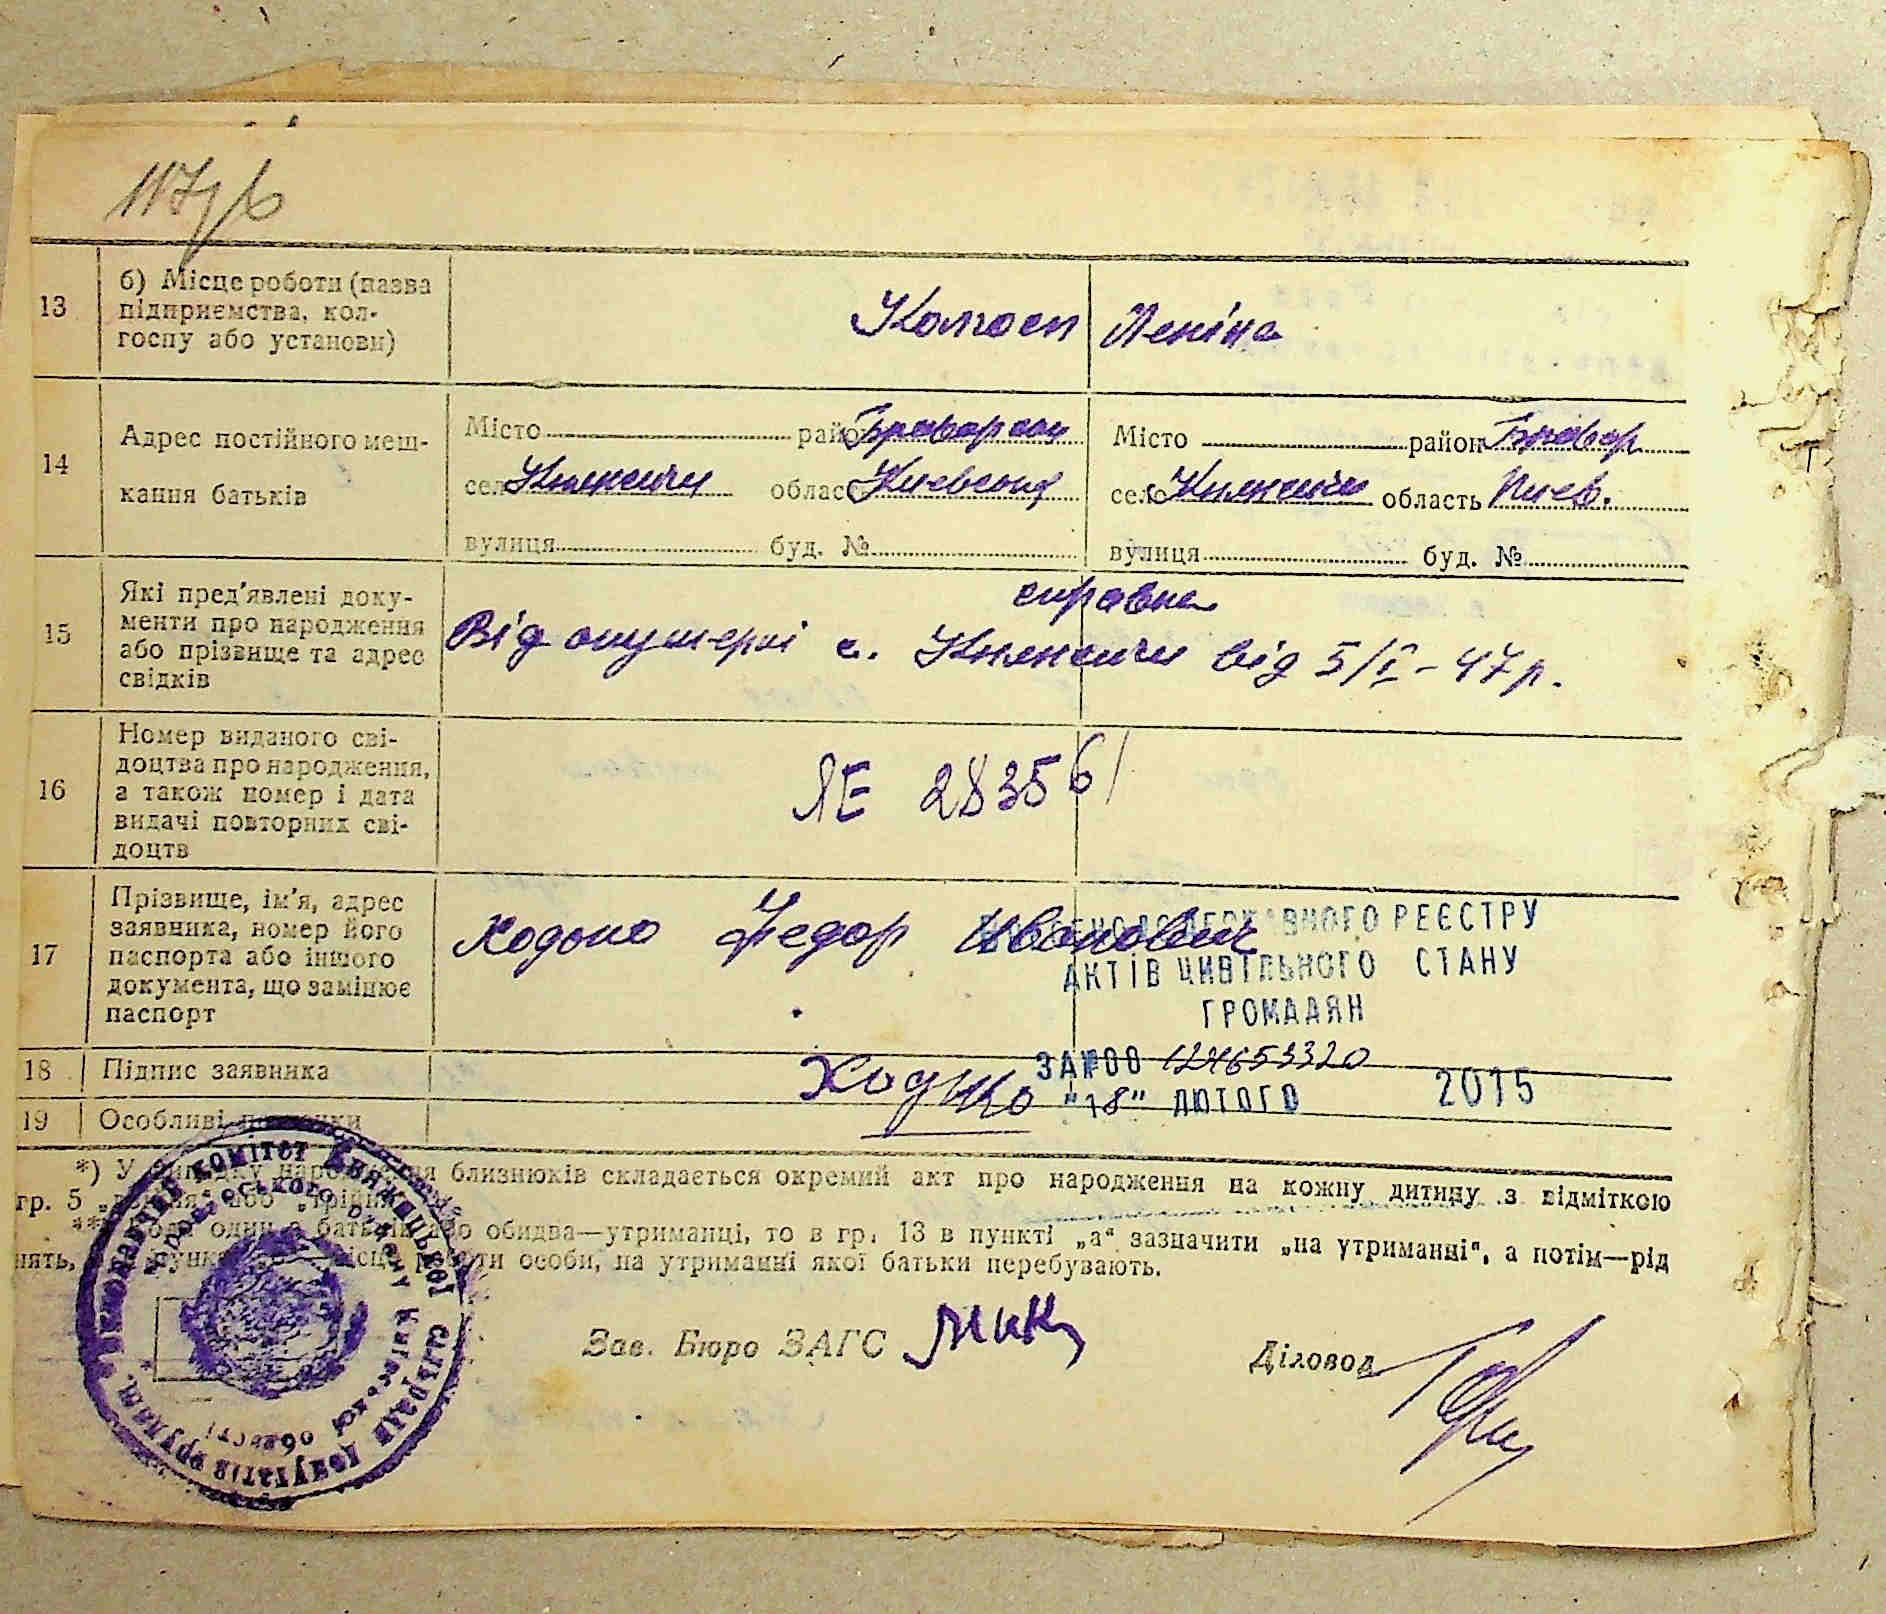 117/б
13
б) Місце роботи (назва
підприємства, кол-
госпу або установи)
Колгосп Леніна
14
Адрес постійного меш-
кання батьків
Місто район Броварськ
село Княжичи область Києвськ
вулиця буд. №
Місто район Бровар
село Княжичи область Киев.
вулиця буд. №
15
Які пред'явлені доку-
менти про народження
або прізвище та адрес
свідків
справка
Від акушерки с. Княжичи від 5/I - 47 р.
16
Номер виданого сві-
доцтва про народження,
а також номер і дата
видачі повторних сві-
доцтв
ЯЕ 283561
17
Прізвище, ім'я, адрес
заявника, номер його
паспорта або іншого
документа, що замінює
паспорт
Федор Иванович
ДЕРЖАВНОГО РЕЄСТРУ
АКТІВ ЦИВІЛЬНОГО СТАНУ
ГРОМАДЯН
18
Підпис заявника
ЗА №00 124653320
"18" ЛЮТОГО 2015
19
Особливі
*) У народження близнюків складається окремий акт про народження на кожну дитину з відміткою
гр. 5
один з батьків або обидва—утриманці, то в гр. 13 в пункті „а“ зазначити „на утриманні“, а потім—рід
особи, на утриманні якої батьки перебувають.
Зав. Бюро ЗАГС
Діловод
Виконавчий комітет Княжицької сільради депутатів трудящ.
Броварського району Київської області